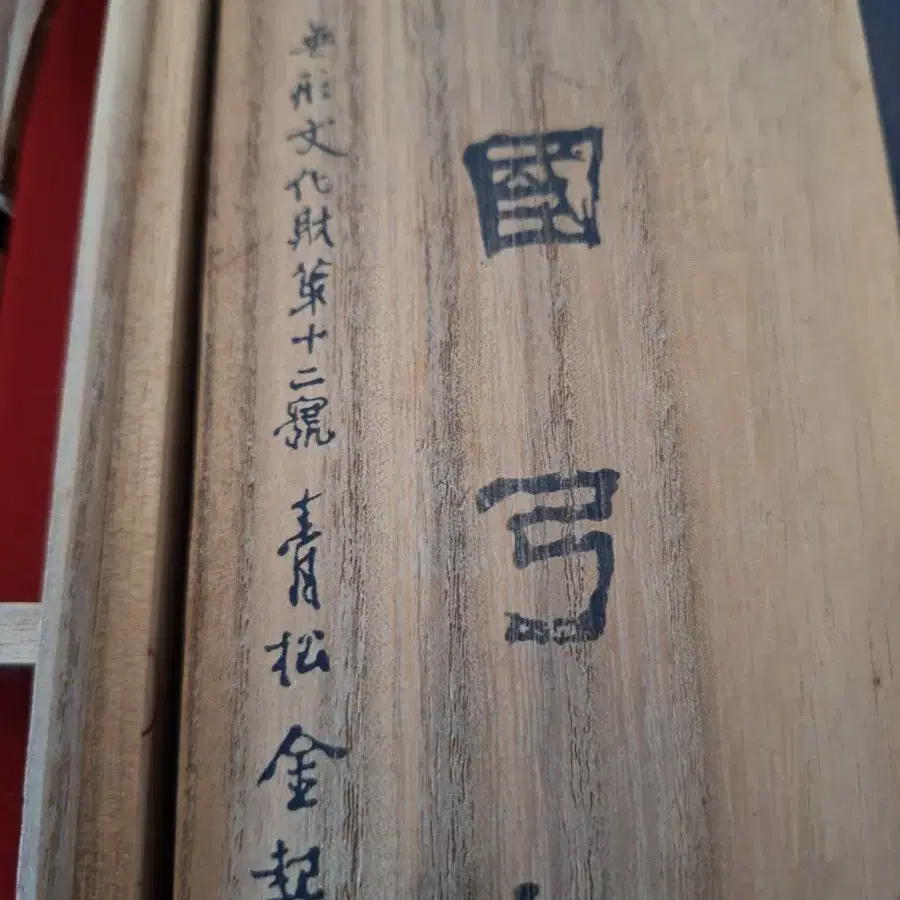 國弓
無形文化財第十二號 青松 金起